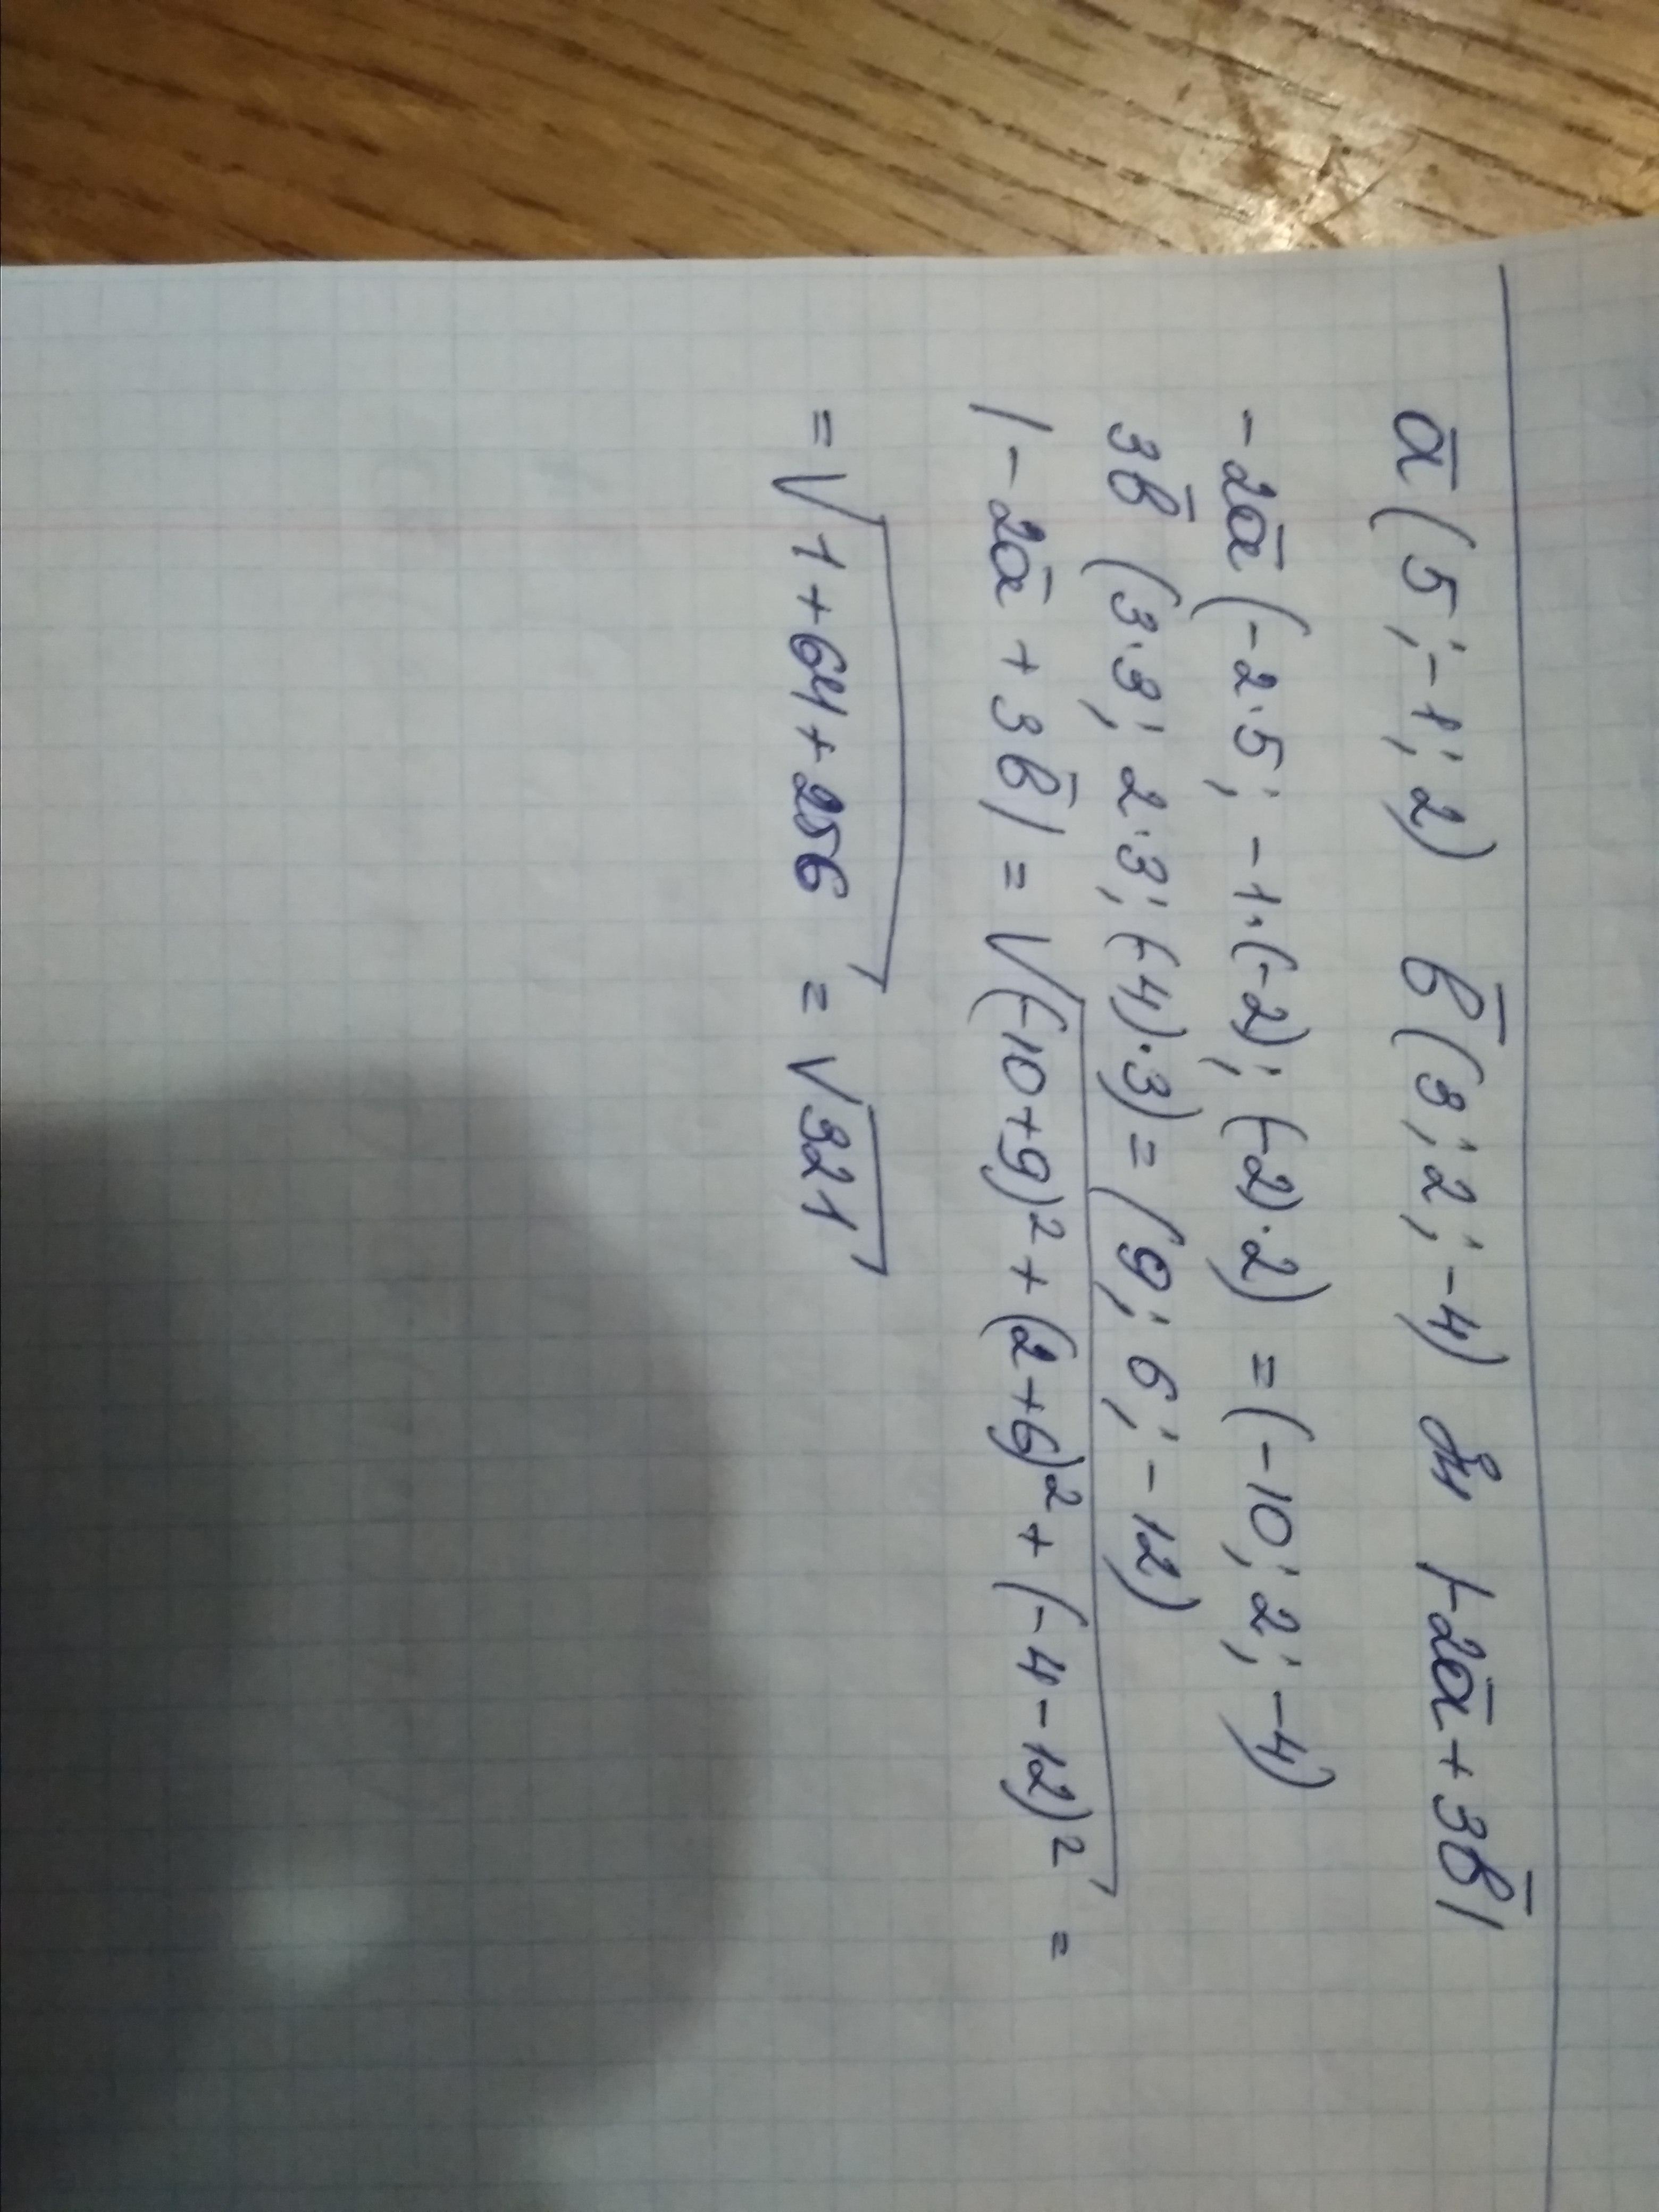 ā (5; -1; 2) b̄ (3; 2; -4) |-2ā + 3b̄|
-2ā (-2·5; -1·(-2); (-2)·2) = (-10; 2; -4)
3b̄ (3·3; 2·3; (-4)·3) = (9; 6; -12)
|-2ā + 3b̄| = √(-10+9)² + (2+6)² + (-4-12)² =
= √1+64+256 = √321